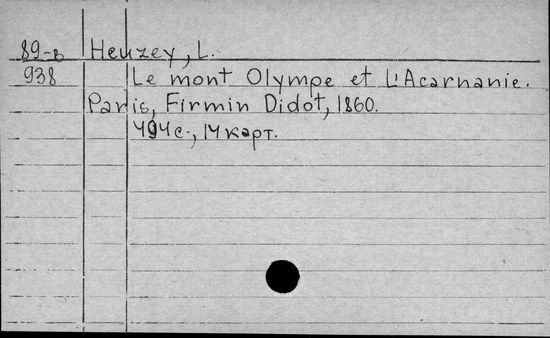 89-в Heuzey, L.
938 Le mont Olympe et L'Acarnanie.
Paris, Firmin Didot, 1860.
494 с., 14 карт.